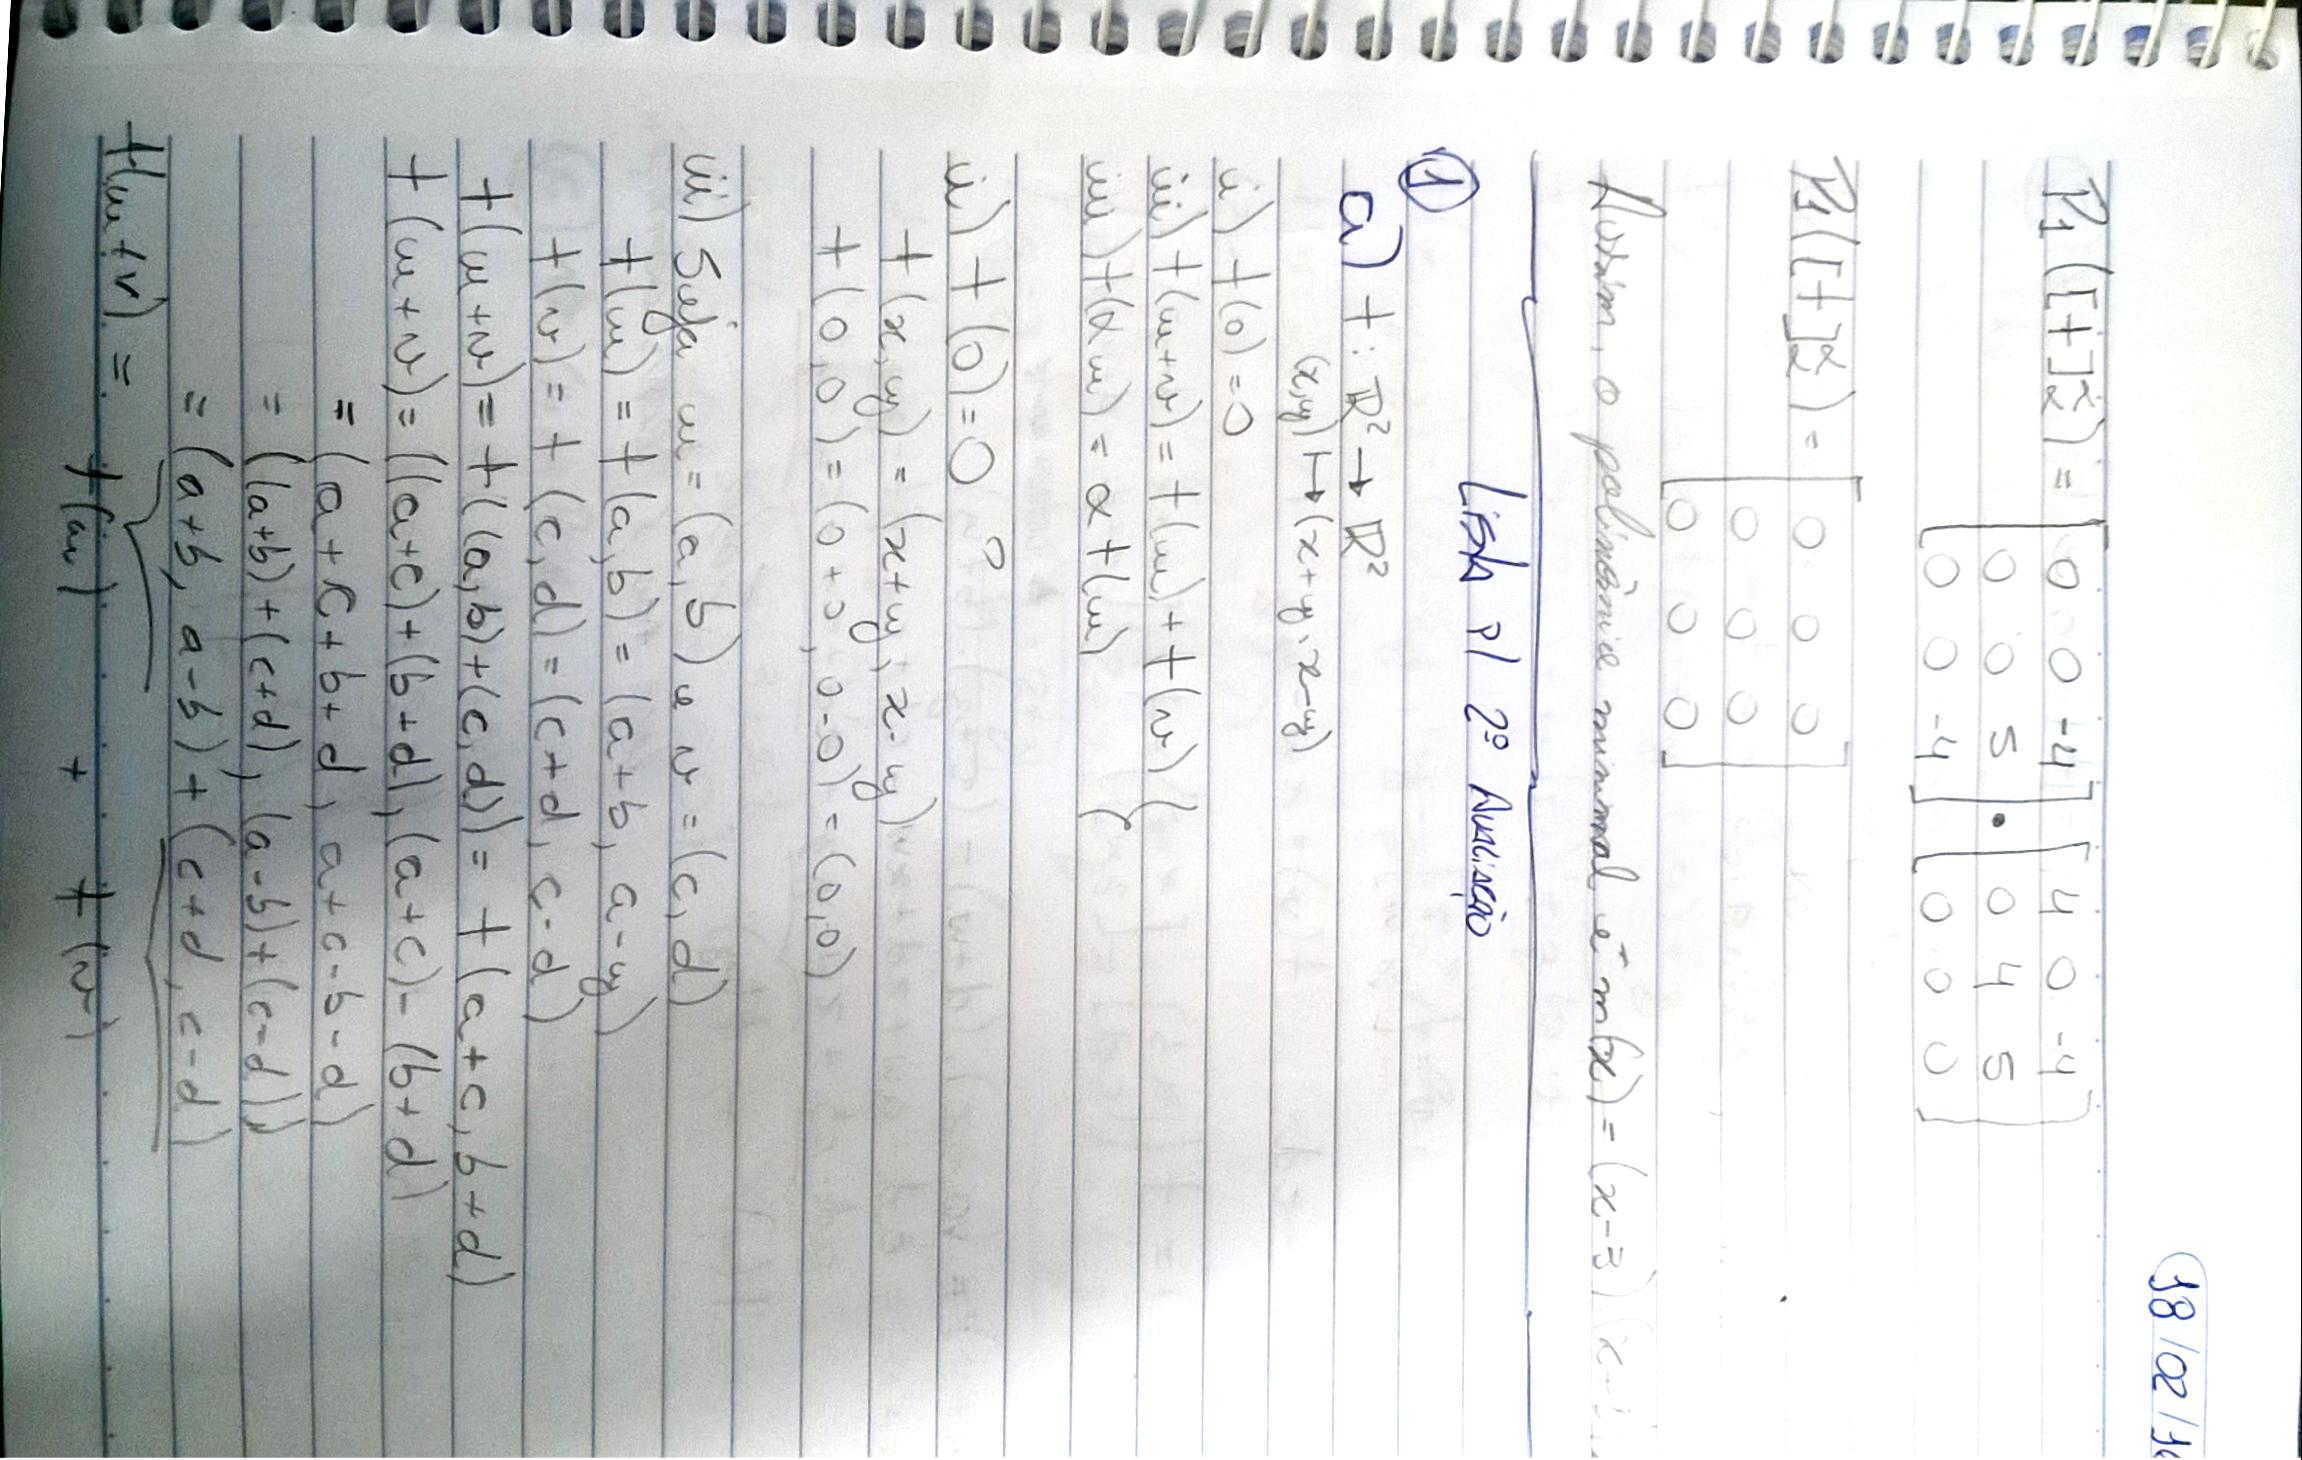 18/02/1
P1([T]αα) = [0 0 -4] . [4 0 -4]
[0 0 5] [0 4 5]
[0 0 -4] [0 0 0]
P1([T]αα) = [0 0 0]
[0 0 0]
[0 0 0]
Assim, o polinômio minimal é m(x) = (x-3)(x-
Lista p/ 2º Avaliação
1
a) T: R² → R²
(x,y) ↦ (x+y, x-y)
i) T(0) = 0
ii) T(u+v) = T(u) + T(v)
iii) T(αu) = αT(u)
i) T(0) = 0 ?
T(x,y) = (x+y, x-y)
T(0,0) = (0+0, 0-0) = (0,0)
ii) Seja u = (a,b) e v = (c,d)
T(u) = T(a,b) = (a+b, a-y)
T(v) = T(c,d) = (c+d, c-d)
T(u+v) = T((a,b)+(c,d)) = T(a+c, b+d)
T(u+v) = ((a+c)+(b+d), (a+c)-(b+d)
= (a+c+b+d, a+c-b-d)
= ((a+b)+(c+d), (a-b)+(c-d))
= (a+b, a-b) + (c+d, c-d)
T(u+v) = T(u) + T(v)